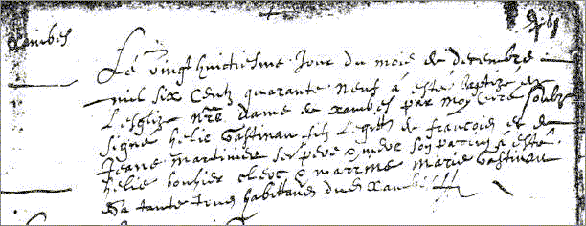 xambes
Le vingt huictiesme Jour du mois de decembre
mil six centz quarante neuf à esté baptizé en
L'esglize nre dame de xambes par moy curé soubz
signé helie gastinau filz Legit de francois et de
Jeane martiniere ses pere & mere son parrin à esté
helie bouhier clerc & marrine marie gastinau
sa tante tous habitans dud xambes